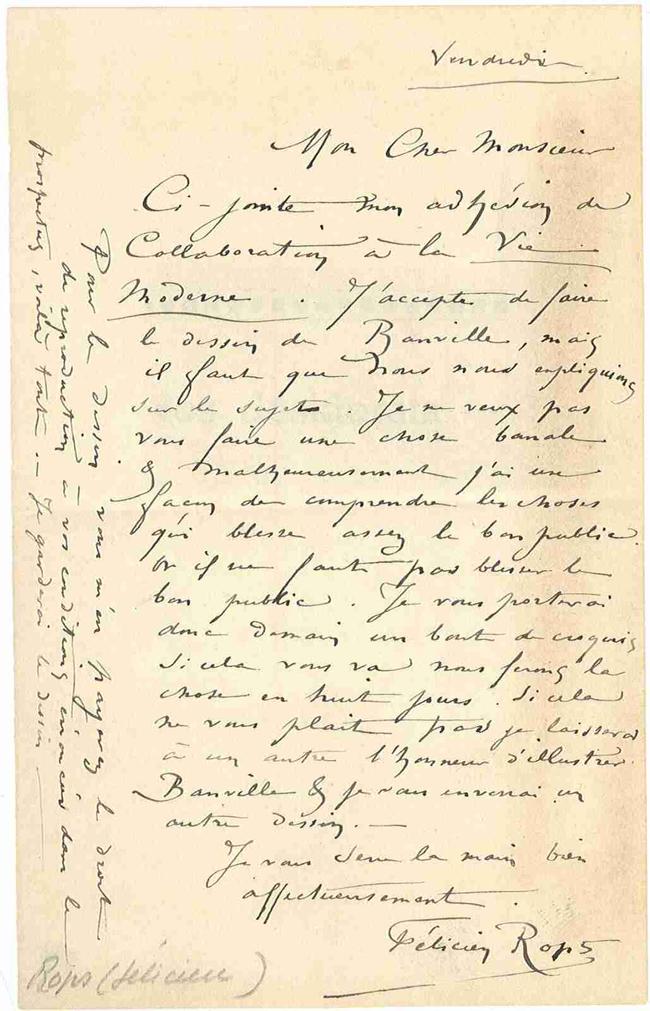 Vendredi
Mon Cher Monsieur
Ci-jointe mon adhésion de
Collaboration à la Vie
Moderne. J'accepte de faire
le dessin de Banville, mais
il faut que nous nous expliquions
sur le sujet. Je ne veux pas
vous faire une chose banale
& malheureusement j'ai une
façon de comprendre les choses
qui blesse assez le bon public.
Or il ne faut pas blesser le
bon public. Je vous porterai
donc demain un bout de croquis
si cela vous va nous ferons la
chose en huit jours. Si cela
ne vous plait pas je laisserai
à un autre l'honneur d'illustrer
Banville & je vous enverrai un
autre dessin. —
Je vous serre la main bien
affectueusement.
Félicien Rops
Pour le dessin vous m'en payerez le droit
de reproduction à vos conditions énoncées dans le
prospectus, voilà tout. — Je garderai le dessin —
Rops (Félicien)